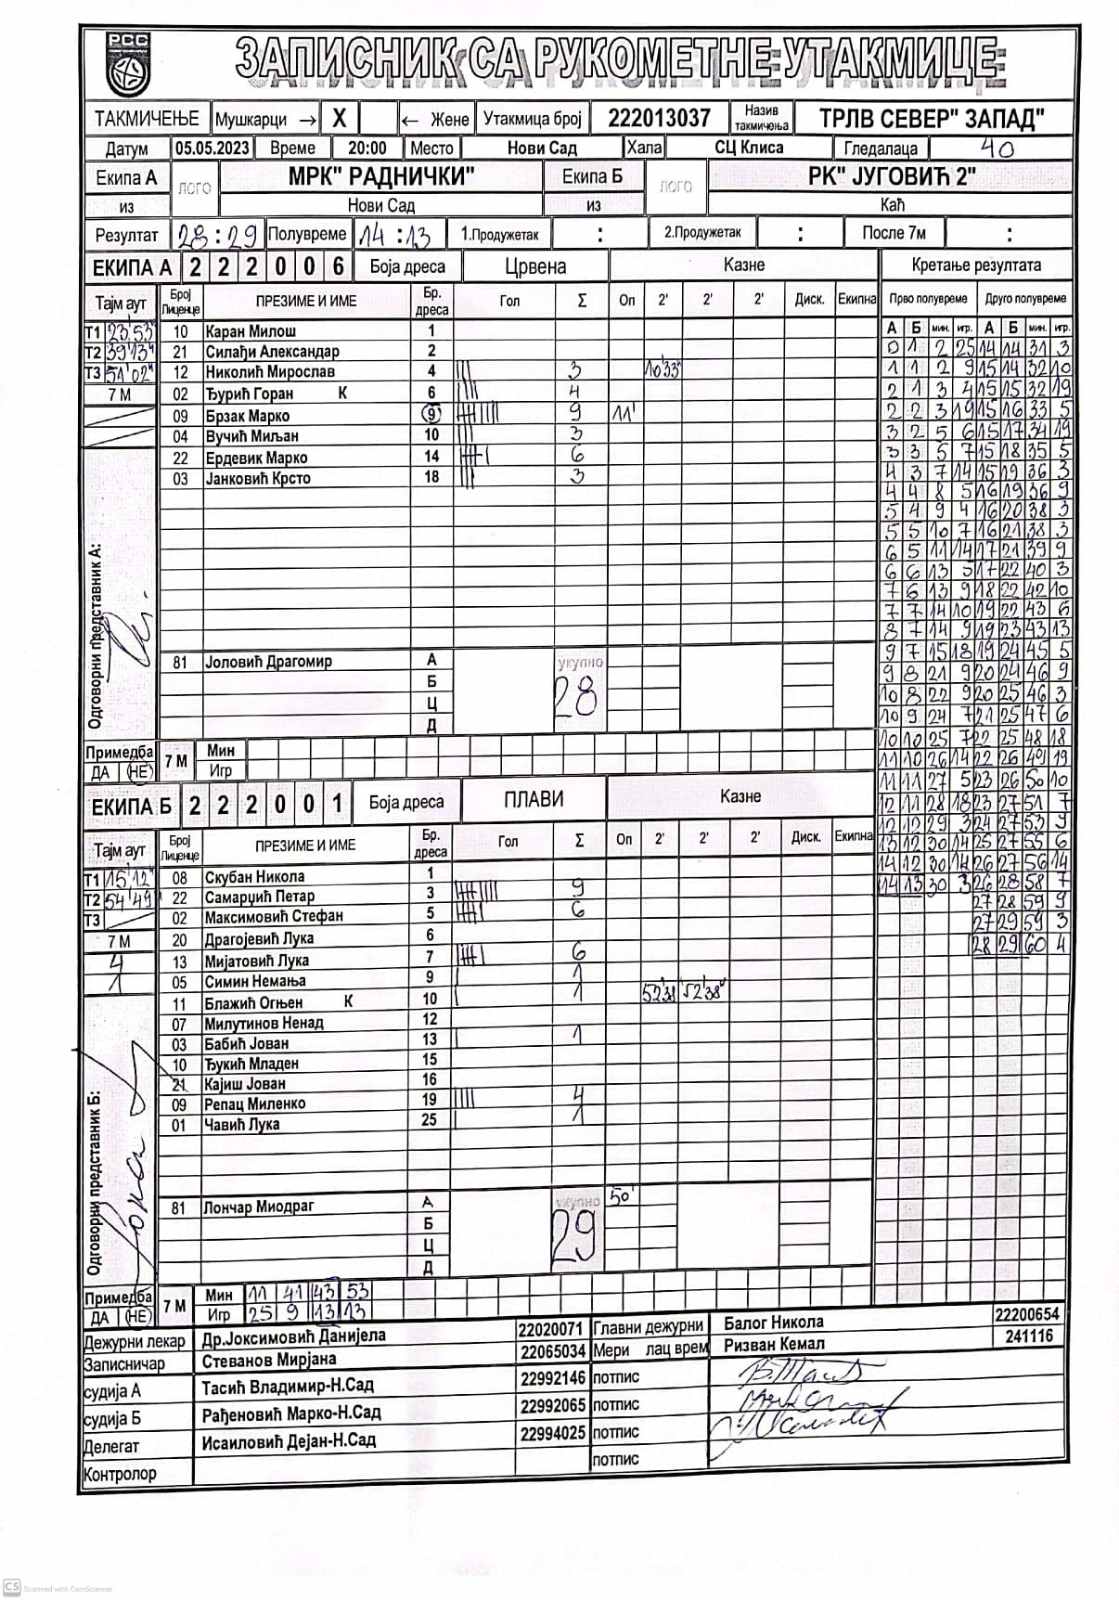 РСС
ЗАПИСНИК СА РУКОМЕТНЕ УТАКМИЦЕ
ТАКМИЧЕЊЕ Мушкарци → X ← Жене Утакмица број 222013037 Назив такмичења ТРЛВ СЕВЕР" ЗАПАД"
Датум 05.05.2023 Време 20:00 Место Нови Сад Хала СЦ Клиса Гледалаца 40
Екипа А лого МРК" РАДНИЧКИ" Екипа Б лого РК" ЈУГОВИЋ 2"
из Нови Сад из Каћ
Резултат 28:29 Полувреме 14:13 1.Продужетак : 2.Продужетак : После 7м :
ЕКИПА А 2 2 2 0 0 6 Боја дреса Црвена Казне Кретање резултата
Тајм аут Број Лиценце ПРЕЗИМЕ И ИМЕ Бр. дреса Гол Σ Оп 2' 2' 2' Диск. Екипна Прво полувреме Друго полувреме
А Б мин. игр. А Б мин. игр.
Т1 23'53" 10 Каран Милош 1
Т2 39'13" 21 Силађи Александар 2
Т3 51'02" 12 Николић Мирослав 4 3 10'33"
7 М 02 Ђурић Горан К 6 4
09 Брзак Марко 9 9 11'
04 Вучић Миљан 10 3
22 Ердевик Марко 14 6
03 Јанковић Крсто 18 3
0 1 2 25 14 14 31 3
1 1 2 9 15 14 32 10
2 1 3 4 15 15 32 19
2 2 3 19 15 16 33 5
3 2 5 6 15 17 34 19
3 3 5 7 15 18 35 5
4 3 7 14 15 19 36 3
4 4 8 5 16 19 36 9
5 4 9 4 16 20 38 3
5 5 10 7 16 21 38 3
6 5 11 14 17 21 39 9
6 6 13 5 17 22 40 3
7 6 13 9 18 22 42 10
7 7 14 10 19 22 43 6
8 7 14 9 19 23 43 13
9 7 15 18 19 24 45 5
9 8 21 9 20 24 46 9
10 8 22 9 20 25 46 3
10 9 24 7 21 25 47 6
10 10 25 7 22 25 48 18
11 10 26 14 22 26 49 19
11 11 27 5 23 26 50 10
12 11 28 18 23 27 51 7
12 12 29 3 24 27 53 9
13 12 30 14 25 27 55 6
14 12 30 14 26 27 56 14
14 13 30 3 26 28 58 7
27 28 59 9
27 29 59 3
28 29 60 4
Одговорни представник А:
81 Јоловић Драгомир А укупно
Б 28
Ц
Д
Примедба 7 М Мин
ДА (НЕ) Игр
ЕКИПА Б 2 2 2 0 0 1 Боја дреса ПЛАВИ Казне
Тајм аут Број Лиценце ПРЕЗИМЕ И ИМЕ Бр. дреса Гол Σ Оп 2' 2' 2' Диск. Екипна
Т1 15'12" 08 Скубан Никола 1
Т2 54'49" 22 Самарџић Петар 3 9
Т3 02 Максимовић Стефан 5 6
7 М 20 Драгојевић Лука 6
4 13 Мијатовић Лука 7 6
1 05 Симин Немања 9 1
11 Блажић Огњен К 10 1 52'38" 52'38"
07 Милутинов Ненад 12
03 Бабић Јован 13 1
10 Ђукић Младен 15
21 Кајиш Јован 16
09 Репац Миленко 19 4
01 Чавић Лука 25 1
Одговорни представник Б:
81 Лончар Миодраг А укупно 50'
Б 29
Ц
Д
Примедба 7 М Мин 11 41 43 53
ДА (НЕ) Игр 25 9 13 13
Дежурни лекар Др.Јоксимовић Данијела 22020071 Главни дежурни Балог Никола 22200654
Записничар Стеванов Мирјана 22065034 Мери лац врем Ризван Кемал 241116
судија А Тасић Владимир-Н.Сад 22992146 потпис
судија Б Рађеновић Марко-Н.Сад 22992065 потпис
Делегат Исаиловић Дејан-Н.Сад 22994025 потпис
Контролор потпис
CS Scanned with CamScanner